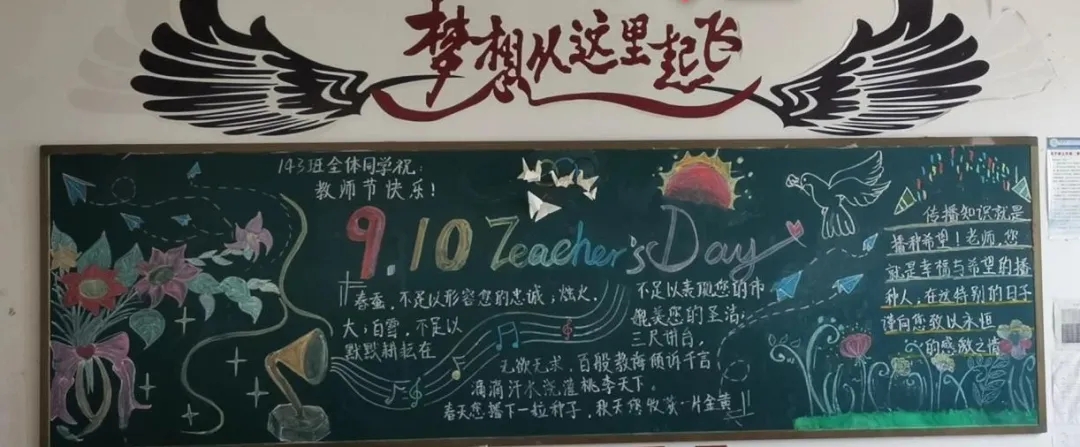 梦想从这里起飞
143班全体同学祝:
教师节快乐!
9.10 Teacher's Day
春蚕,不足以形容您的忠诚;烛火,
不足以表现您的
大;白雪,不足以
媲美您的圣洁;
默默耕耘在
三尺讲台,
无欲无求,百般教诲倾诉千言,
滴滴汗水浇灌桃李天下。
春天您播下一粒种子,秋天将收获一片金黄
传播知识就是
播种希望!老师,您
就是幸福与希望的播
种人,在这特别的日子
谨向您致以永恒
的感激之情